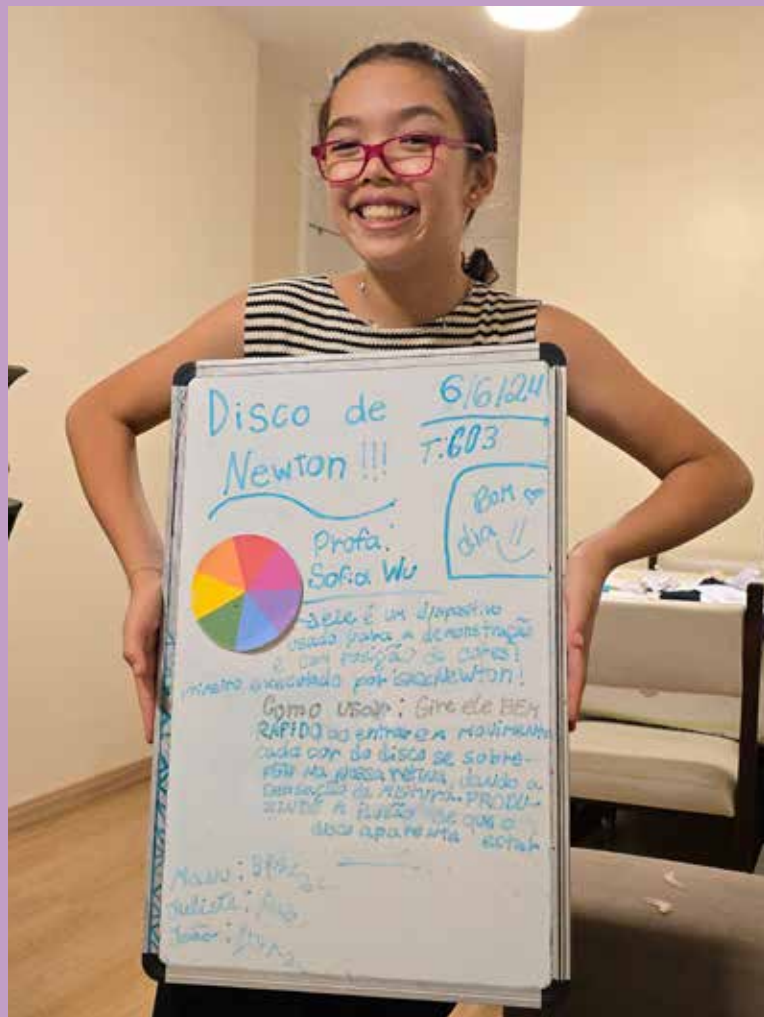 Disco de
Newton !!!
6/6/24
T:603
Bom
dia !!
Profa:
Sofia Wu
ele é um dispositivo
usado para a demonstração
e composição de cores!
primeiro executado por Isaac Newton!
Como usar: Gire ele BEM
RÁPIDO ao entrar em movimento
cada cor do disco se sobre-
põe na nossa retina, dando a
sensação da mistura. PRODU-
ZINDO A ilusão de que o
disco aparenta estar
Manu:
João: